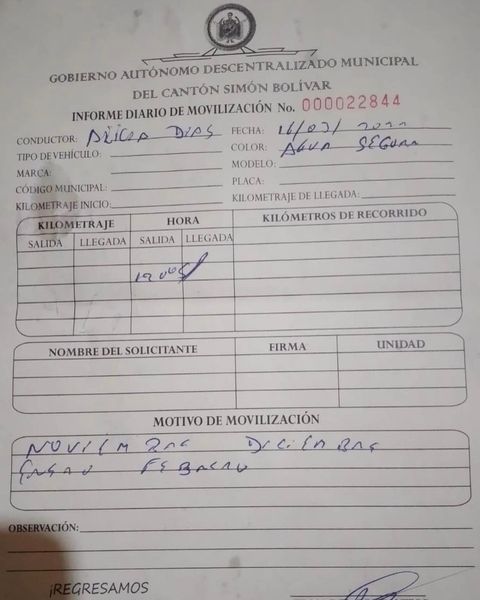 GOBIERNO AUTÓNOMO DESCENTRALIZADO MUNICIPAL
DEL CANTÓN SIMÓN BOLÍVAR
INFORME DIARIO DE MOVILIZACIÓN No. 000022844
CONDUCTOR: DIAS FECHA: 16/03/
TIPO DE VEHÍCULO: COLOR: AGUA SEGURA
MARCA: MODELO:
CÓDIGO MUNICIPAL: PLACA:
KILOMETRAJE INICIO: KILOMETRAJE DE LLEGADA:
KILOMETRAJE HORA KILÓMETROS DE RECORRIDO
SALIDA LLEGADA SALIDA LLEGADA
NOMBRE DEL SOLICITANTE FIRMA UNIDAD
MOTIVO DE MOVILIZACIÓN
NOVIEMBRE DICIEMBRE
ENERO FEBRERO
OBSERVACIÓN:
¡REGRESAMOS